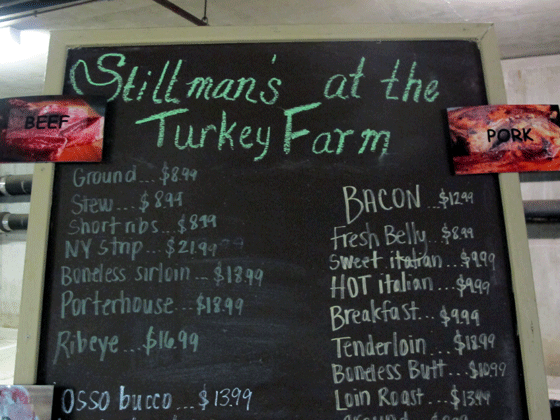 Stillman's at the
Turkey Farm
BEEF
Ground...$8.99
Stew...$8.99
Short ribs...$8.99
NY Strip...$21.99
Boneless sirloin...$18.99
Porterhouse...$18.99
Ribeye...$16.99
Osso bucco...$13.99
PORK
BACON...$12.99
Fresh Belly...$8.99
Sweet italian...$9.99
HOT italian...$9.99
Breakfast...$9.99
Tenderloin...$18.99
Boneless Butt...$10.99
Loin Roast...$13.99